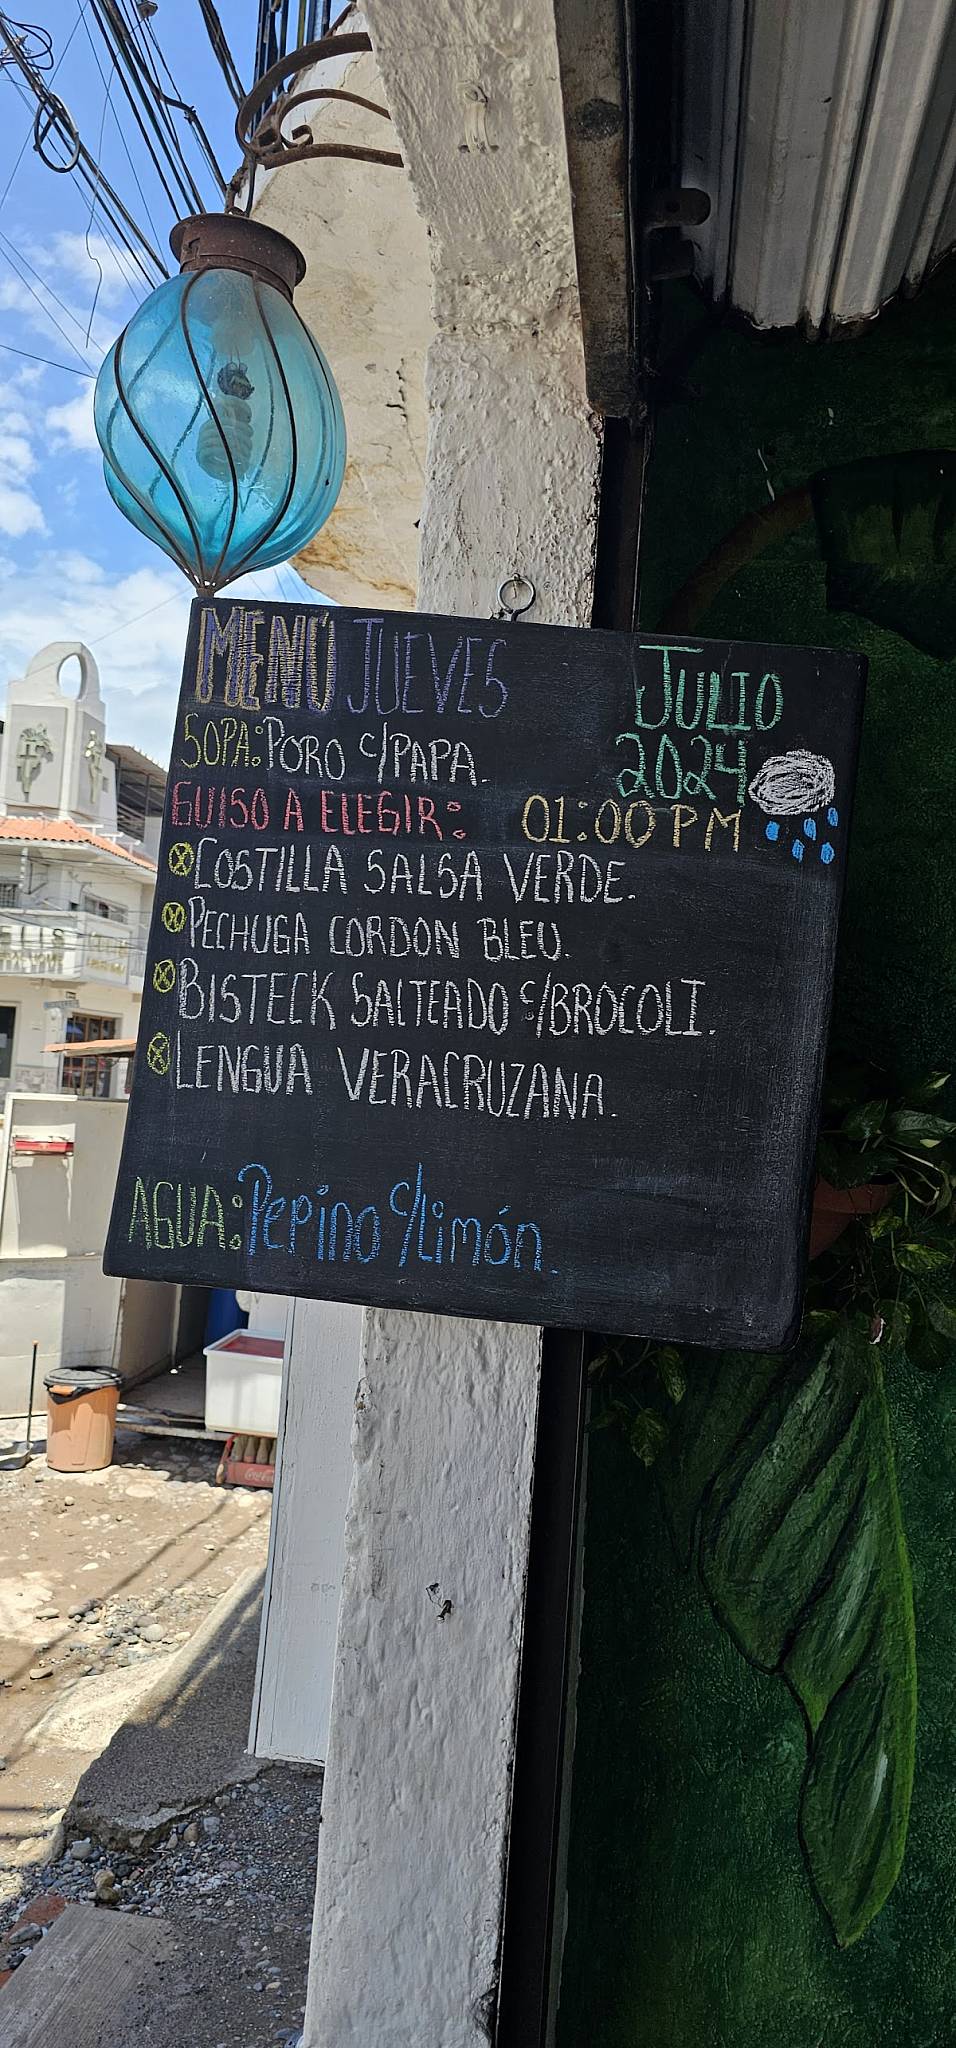 MENÚ JUEVES
JULIO
2024
SOPA: PORO C/PAPA.
GUISO A ELEGIR: 01:00 PM
COSTILLA SALSA VERDE.
PECHUGA CORDON BLEU.
BISTECK SALTEADO C/BROCOLI.
LENGUA VERACRUZANA.
AGUA: Pepino C/Limón.
Coca-Cola